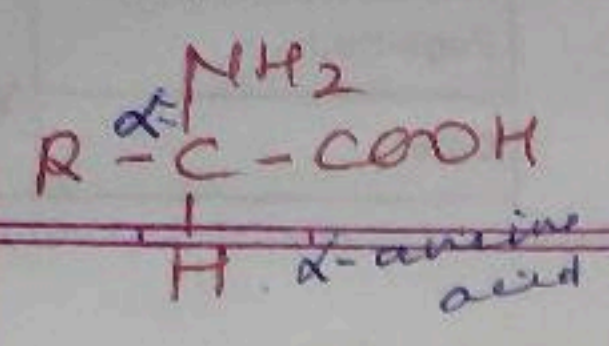 NH2
α
R - C - COOH
H
α-amine
acid